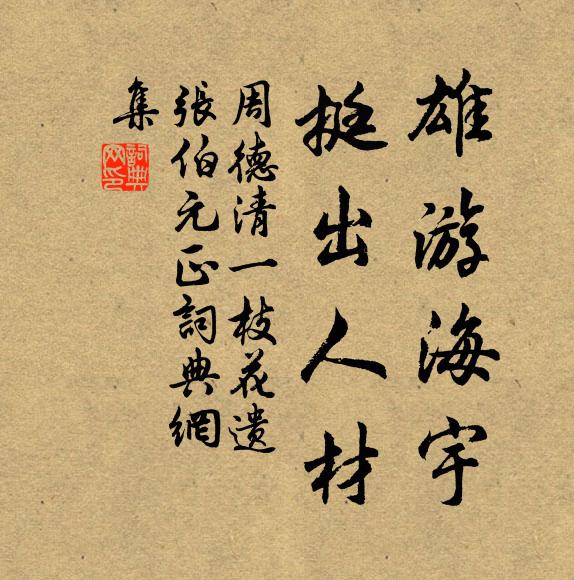 雄游海宇
挺出人材
周德清一枝花遗
張伯元正詞典網
集
詞典網印